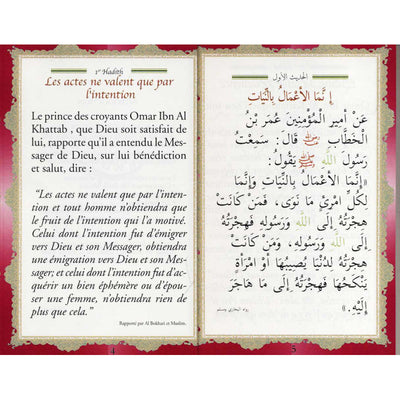 1er Hadith
Les actes ne valent que par
l'intention
Le prince des croyants Omar Ibn Al
Khattab , que Dieu soit satisfait de
lui, rapporte qu'il a entendu le Mes-
sager de Dieu, sur lui bénédiction
et salut, dire :
“Les actes ne valent que par l'inten-
tion et tout homme n'obtiendra que
le fruit de l'intention qui l'a motivé.
Celui dont l'intention fut d'émigrer
vers Dieu et son Messager, obtiendra
une émigration vers Dieu et son Mes-
sager; et celui dont l'intention fut d'ac-
quérir un bien éphémère ou d'épou-
ser une femme, n'obtiendra rien de
plus que cela.”
Rapporté par Al Bukhari et Muslim.
4
الحديث الأول
إِنَّمَا الأَعْمَالُ بِالنِّيَّاتِ
عَنْ أَمِيرِ الْمُؤْمِنِينَ عُمَرَ بْنِ
الْخَطَّابِ ﷺ قَالَ: سَمِعْتُ
رَسُولَ اللَّهِ ﷺ يَقُولُ:
«إِنَّمَا الأَعْمَالُ بِالنِّيَّاتِ وَإِنَّمَا
لِكُلِّ امْرِئٍ مَا نَوَى، فَمَنْ كَانَتْ
هِجْرَتُهُ إِلَى اللَّهِ وَرَسُولِهِ فَهِجْرَتُهُ
إِلَى اللَّهِ وَرَسُولِهِ، وَمَنْ كَانَتْ
هِجْرَتُهُ لِدُنْيَا يُصِيبُهَا أَوْ امْرَأَةٍ
يَنْكِحُهَا فَهِجْرَتُهُ إِلَى مَا هَاجَرَ
إِلَيْهِ.»
رواه البخاري ومسلم
5